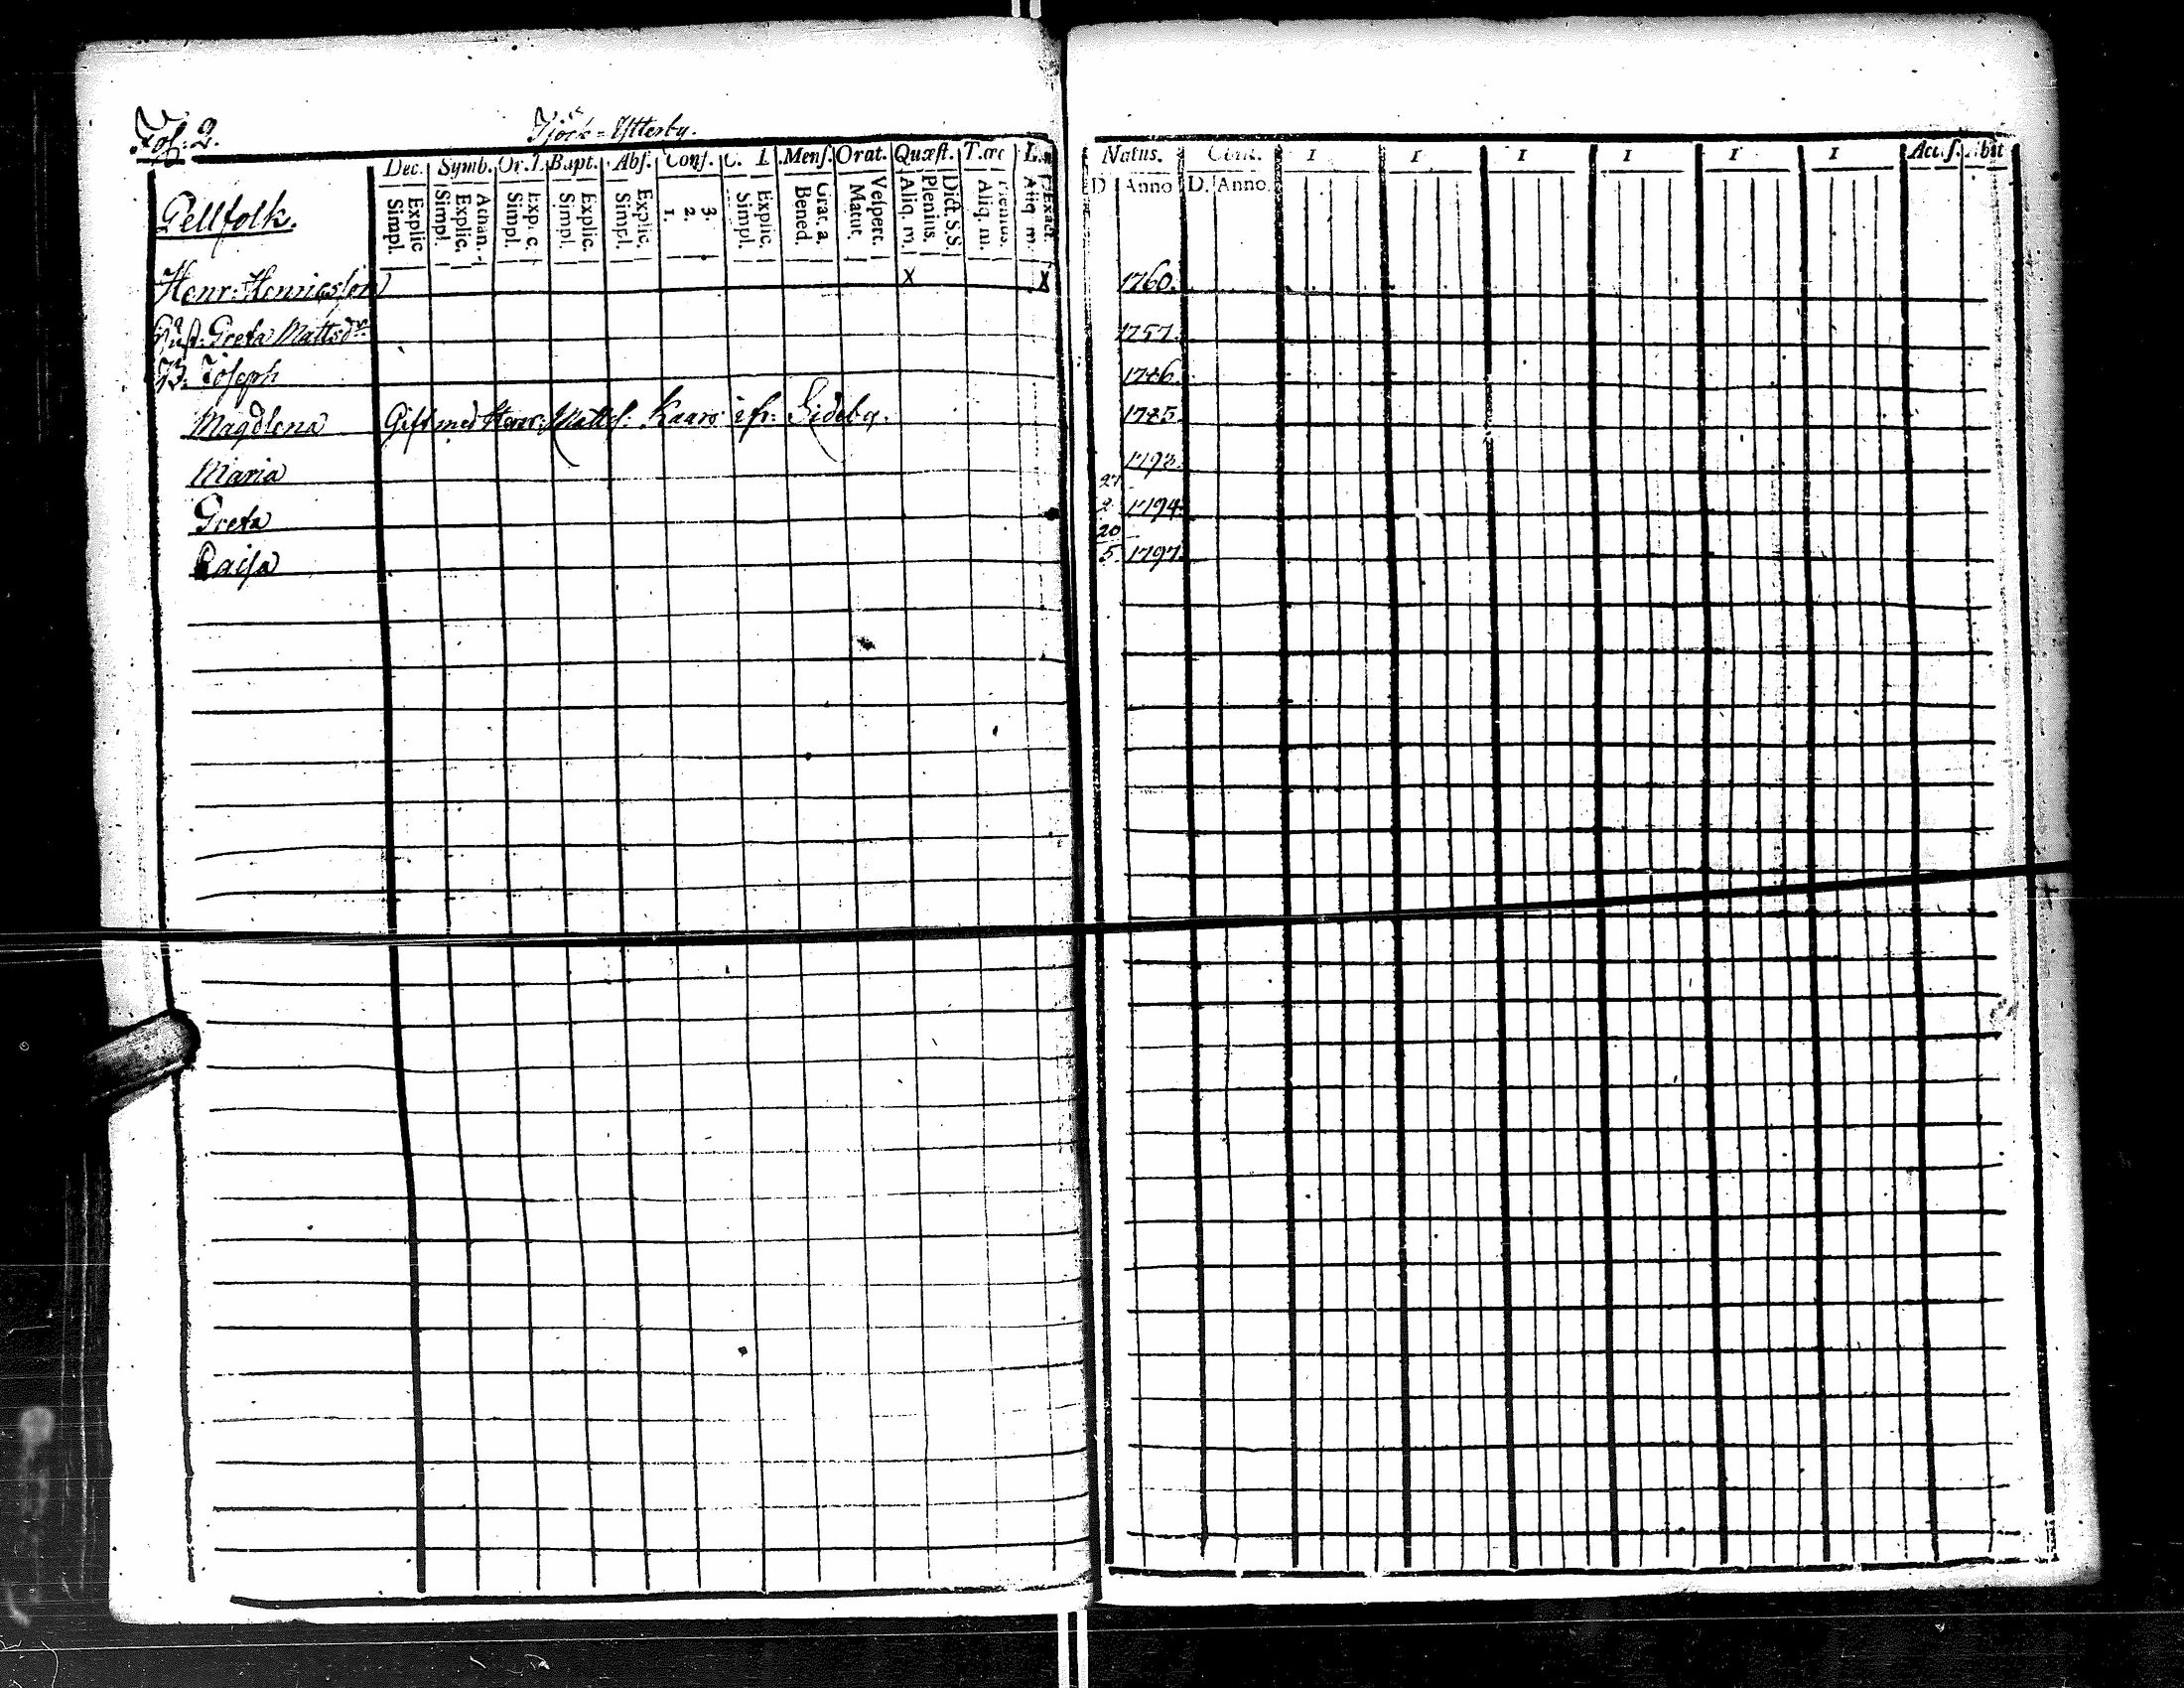 Fol: 2.
Tjöck-Ytterby.
Dec. Symb. Or. D. Bapt. Abſ. Conf. C. D. Menſ. Orat. Quæſt. T. œc L.
Explic. Simpl. Athan. Explic. Simpl. Expl. c. Simpl. Explic. Simpl. Explic. Simpl. 3. 2. 1. Explic. Simpl. Grat. a. Bened. Veſpert. Matut. Dict. S.S. Plenius. Aliq. m. Plenius. Aliq. m. Exact. Aliq. m.
Natus. Com. I I I I I I Accſ. Abit
D. Anno D. Anno.
Pellfolk.
Henr: Henricsſon x x 1760.
Huſt. Greta Mattsdr. 1757.
B. Joſeph 1786.
Magdlena Gift med Henr: Mattſ: Kaars ifr: Lideby. 1785.
Maria 1793.
Greta 27 2 1794.
Caiſa 20 5. 1797.